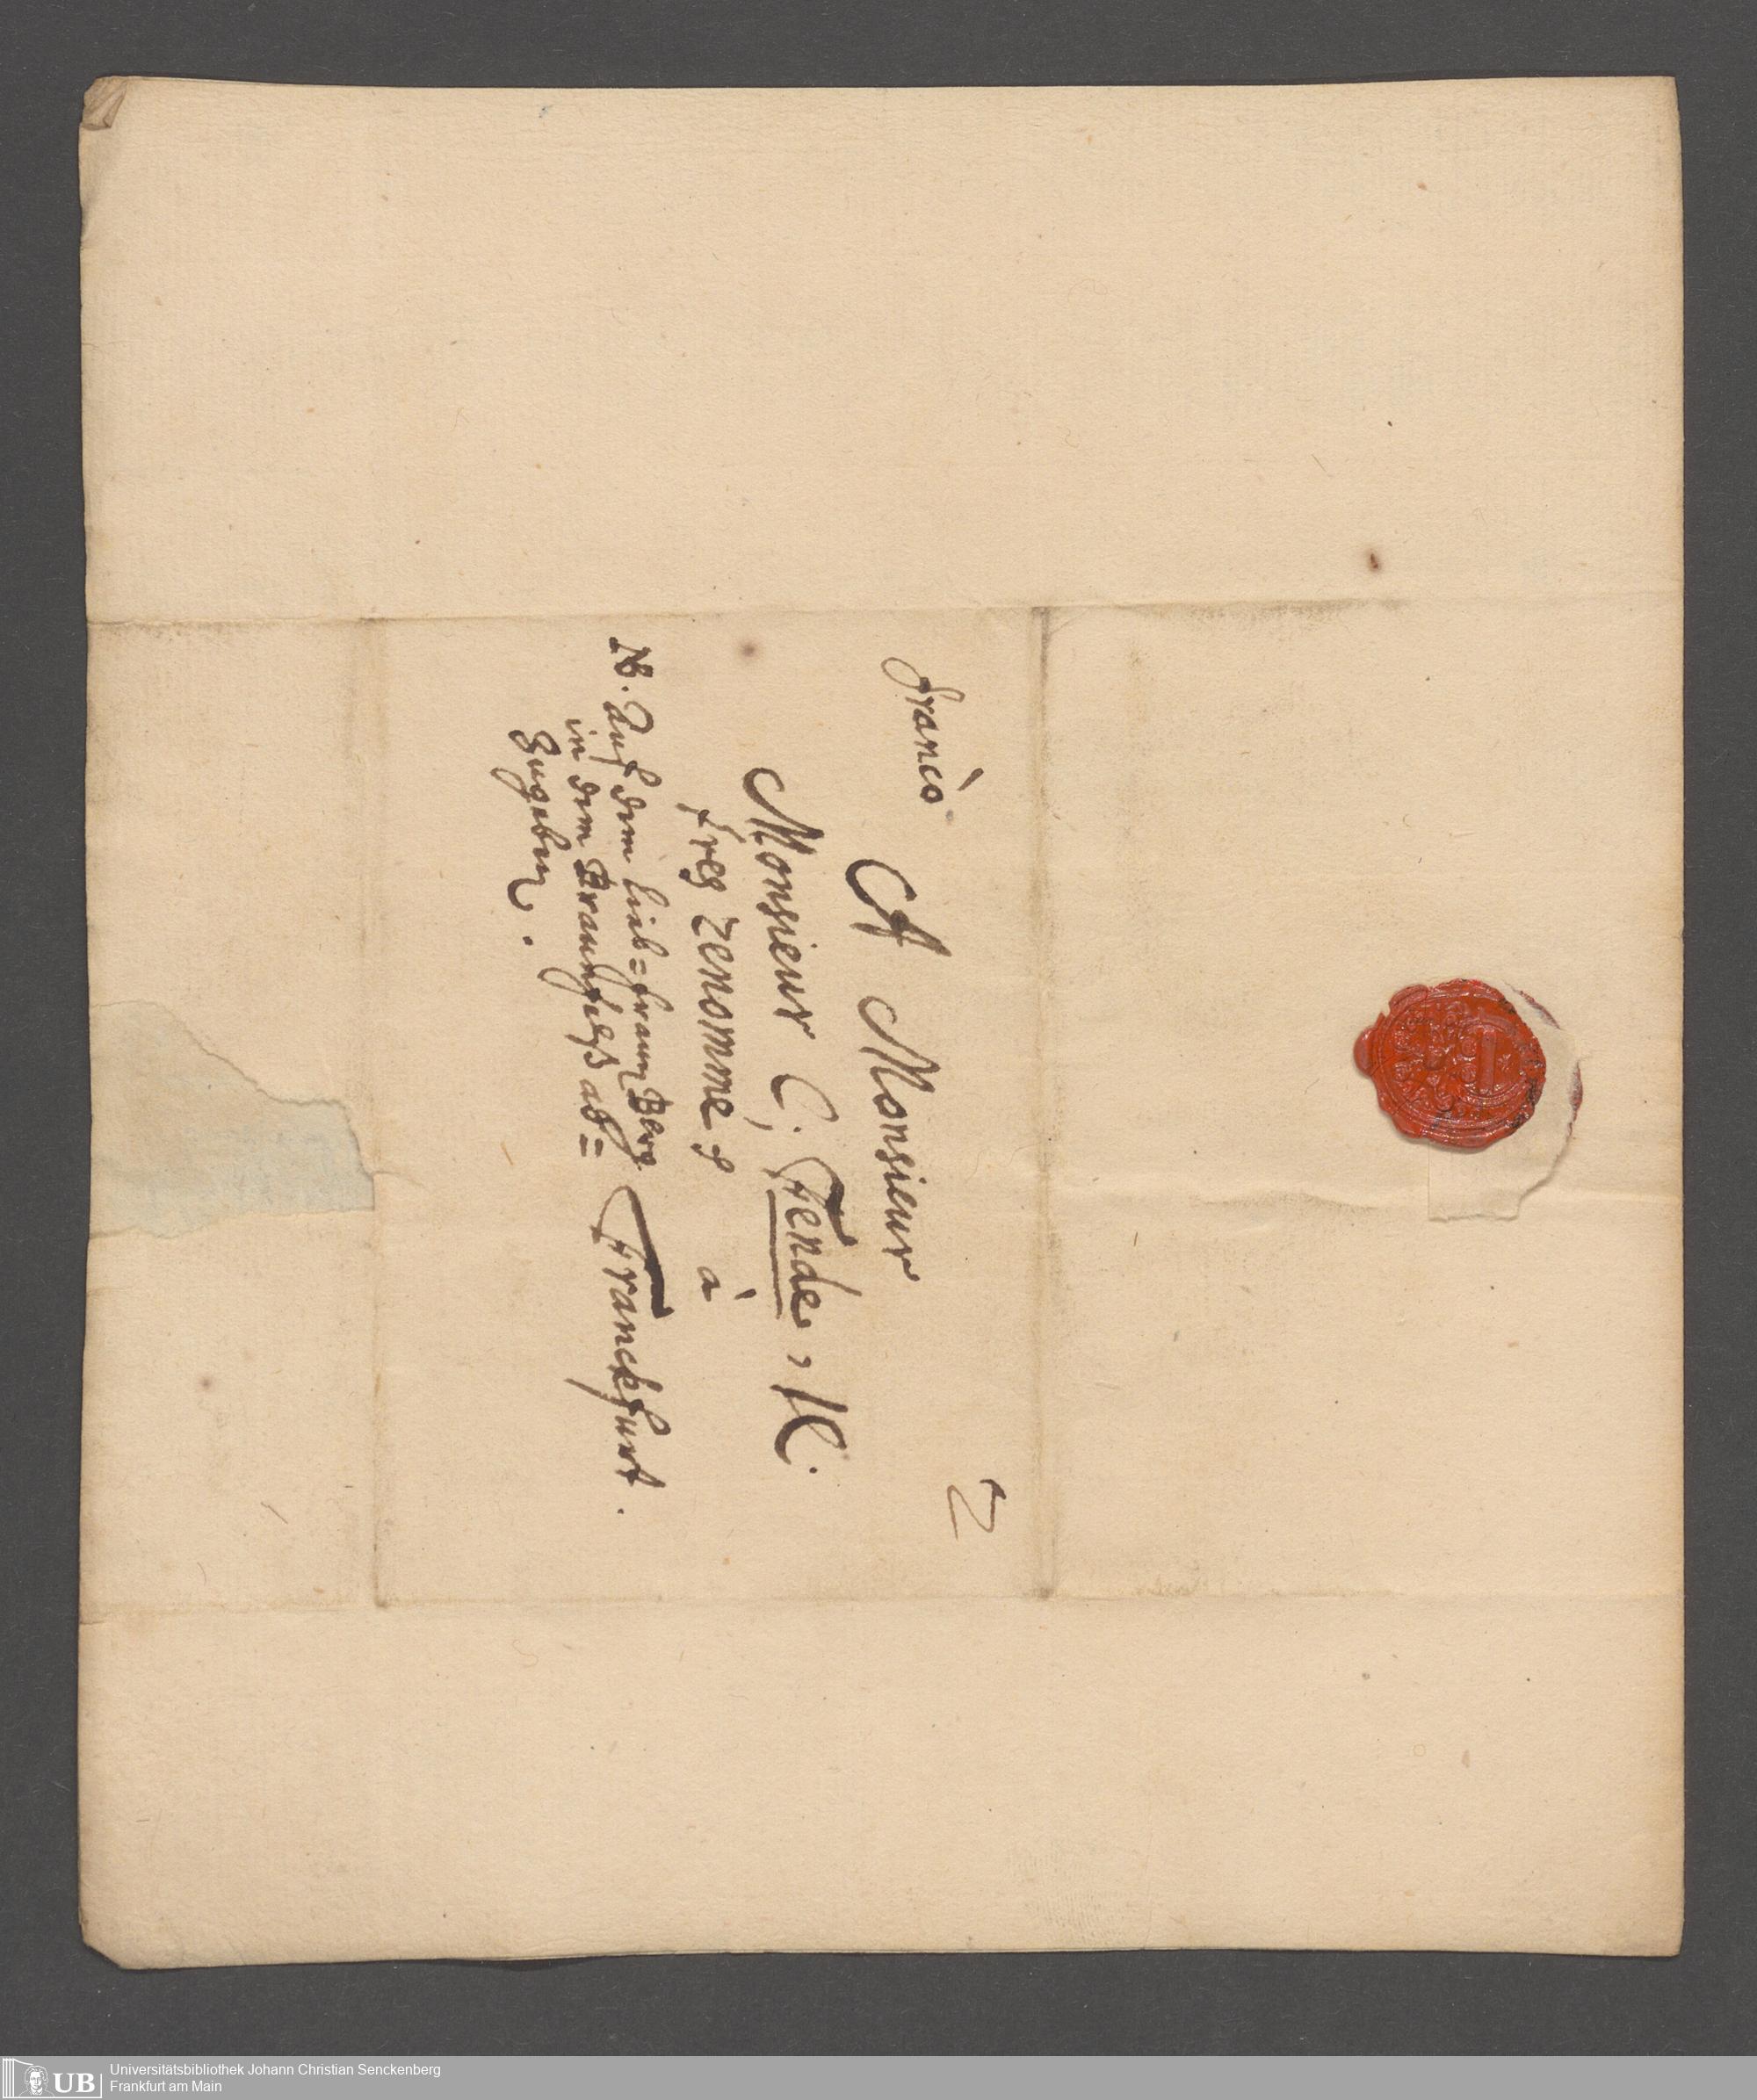 francò
2
A Monsieur
Monsieur C. Fende, M.
tres renommé à
NB. Auf dem lieb=frauen Berg
in dem Braunfelß ab=
zugeben.
Franckfurt.
UB
Universitätsbibliothek Johann Christian Senckenberg
Frankfurt am Main